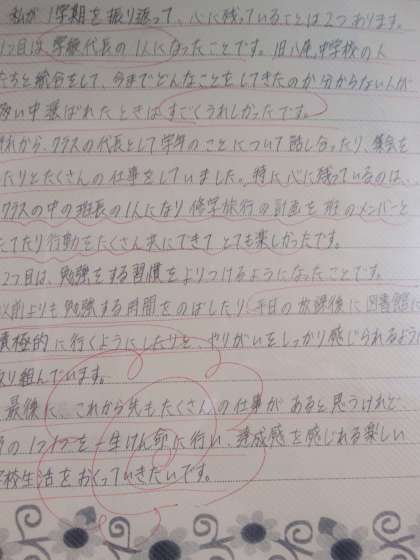 私が1学期を振り返って、心に残っていることは2つあります。
1つ目は、学級代長の1人になったことです。旧八尾中学校の人
たちと統合をして、今までどんなことをしてきたのか分からない人が
多い中選ばれたときはすごくうれしかったです。
それから、クラスの代長として学年のことについて話し合ったり、集会を
したりとたくさんの仕事をしていました。特に心に残っているのは、
クラスの中の班長の1人になり修学旅行の計画を班のメンバーと
たてたり行動をたくさん共にできてとても楽しかったです。
2つ目は、勉強をする習慣をよりつけるようになったことです。
以前よりも勉強する時間をのばしたり平日の放課後に図書館に
積極的に行くようにしたりと、やりがいをしっかり感じられるように
取り組んでいます。
最後に、これから先もたくさんの仕事があると思うけれど、
その1つ1つを一生けん命に行い、達成感を感じれる楽しい
学校生活をおくっていきたいです。